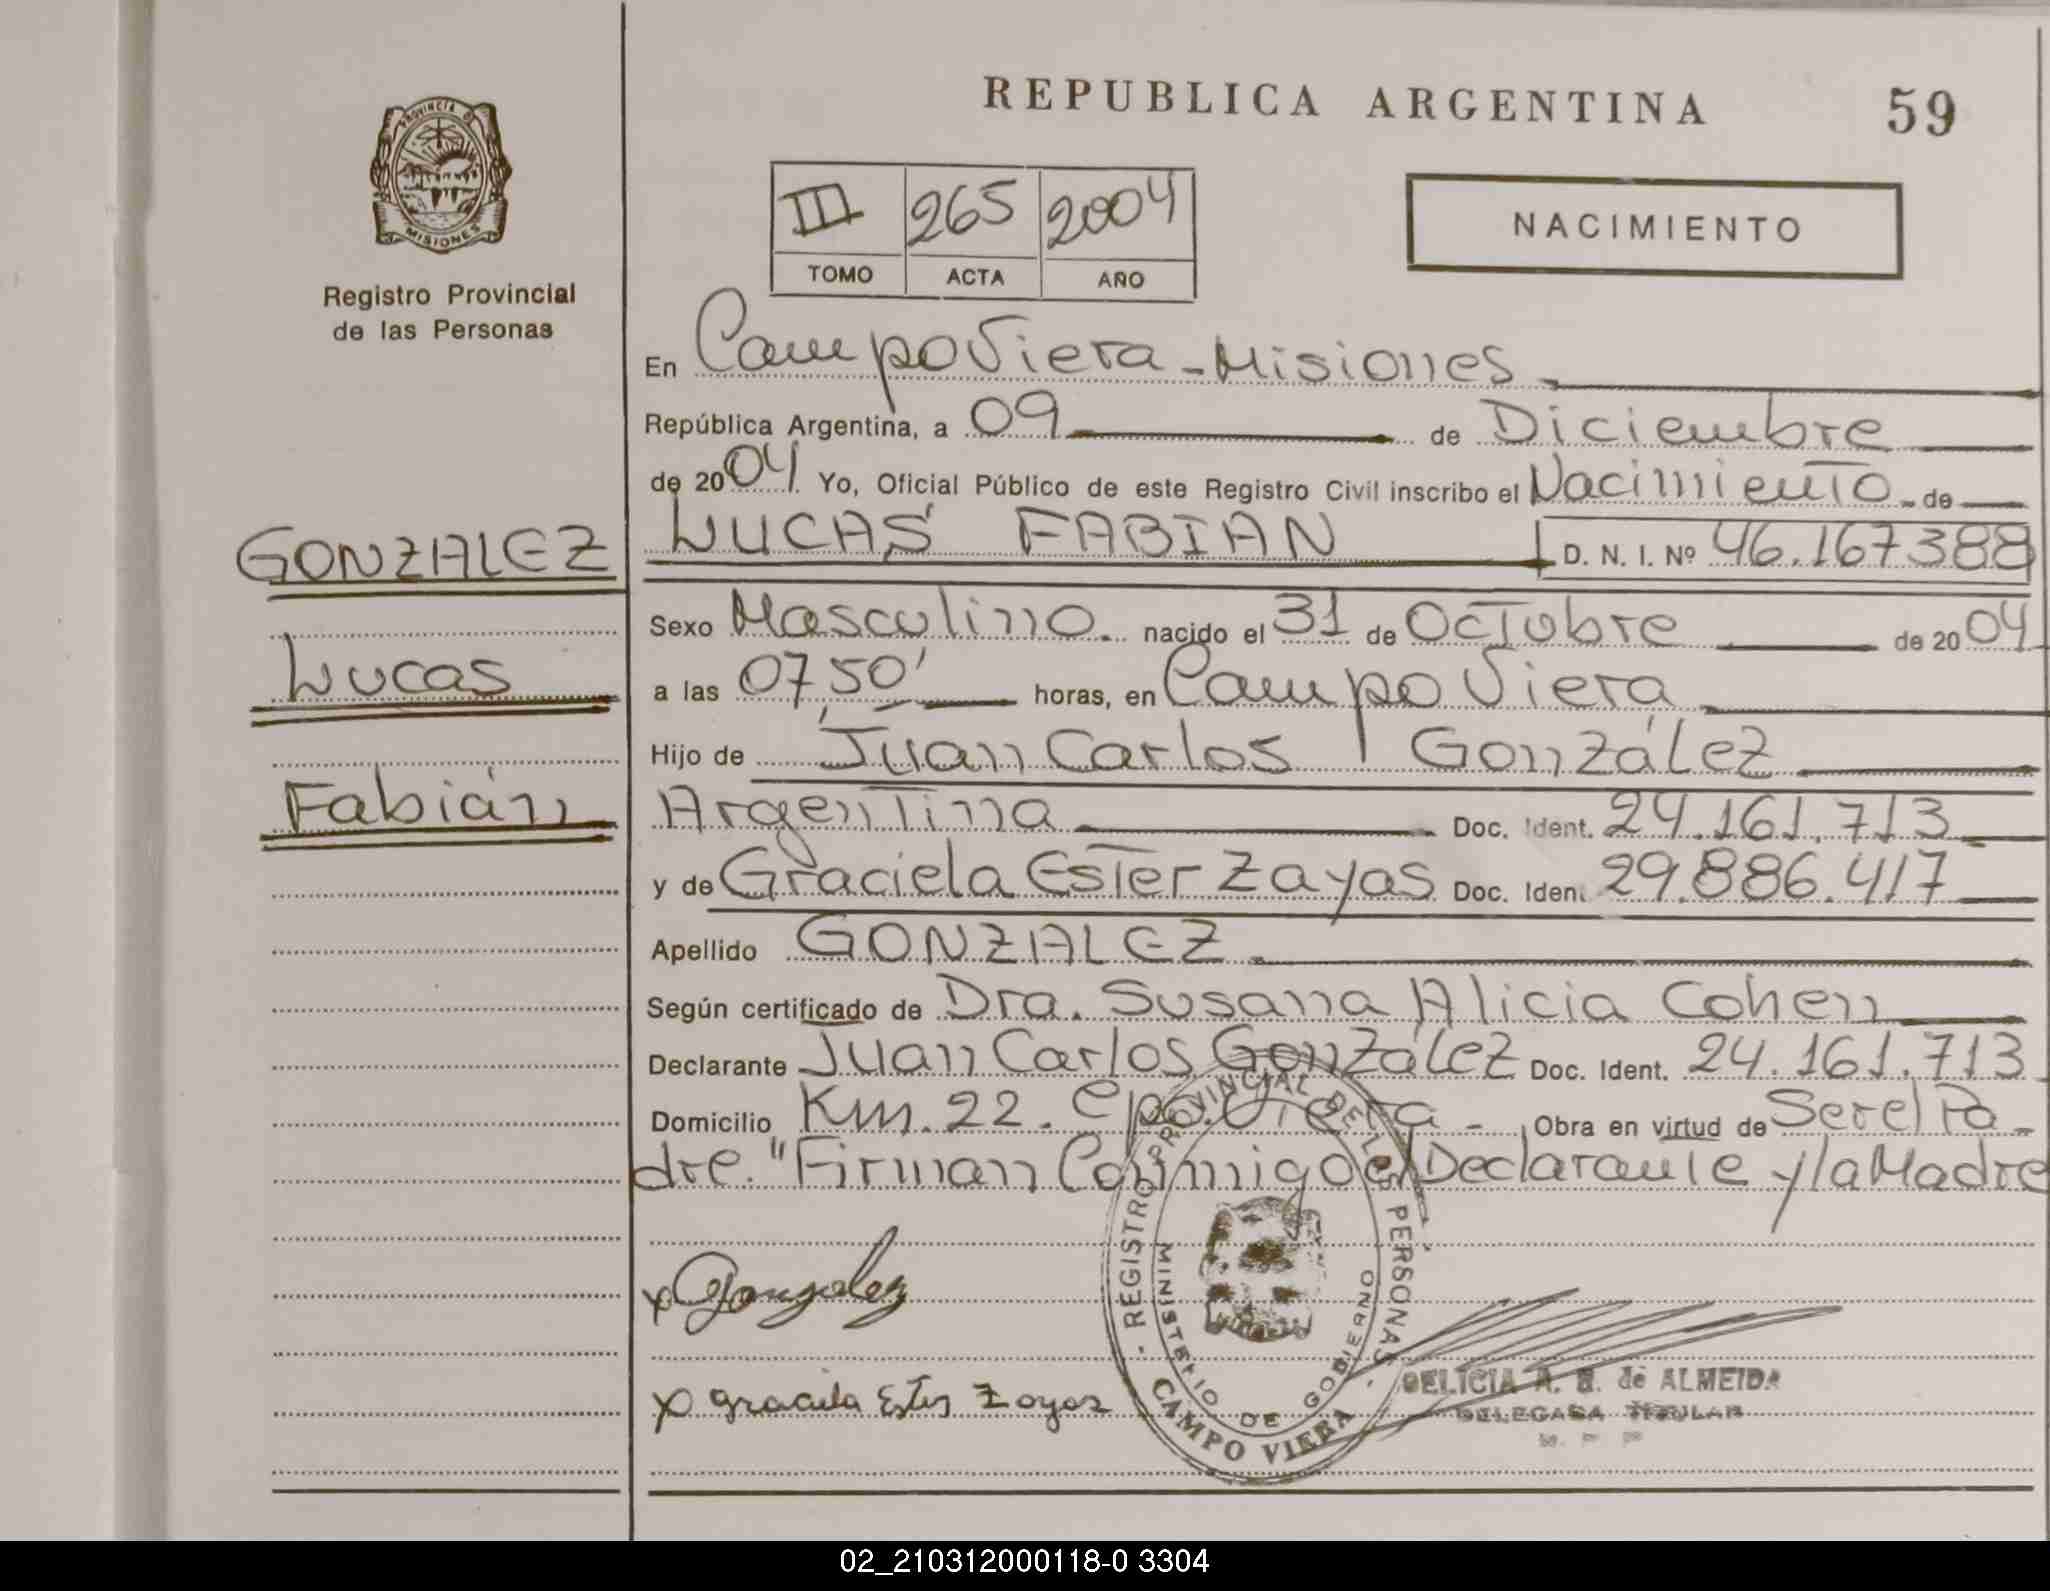 PROVINCIA DE
MISIONES
Registro Provincial
de las Personas
GONZALEZ
Lucas
Fabián
REPUBLICA ARGENTINA 59
III 265 2004
TOMO ACTA AÑO
NACIMIENTO
En Campo Viera - Misiones
República Argentina, a 09 de Diciembre
de 2004 Yo, Oficial Público de este Registro Civil inscribo el Nacimiento de
LUCAS FABIAN D. N. I. Nº 46.167388
Sexo Masculino. nacido el 31 de Octubre de 2004
a las 07,50' horas, en Campo Viera
Hijo de Juan Carlos González
Argentina Doc. Ident. 24.161.713
y de Graciela Ester Zayas Doc. Iden. 29.886.417
Apellido GONZALEZ.
Según certificado de Dra. Susana Alicia Cohen
Declarante Juan Carlos González Doc. Ident. 24.161.713
Domicilio Km. 22. Cpo. Viera - Obra en virtud de Ser el Pa-
dre. "Firman Conmigo el Declarante y la Madre
x Gonzalez
x Graciela Ester Zayas
- REGISTRO PROVINCIAL DE LAS PERSONAS -
MINISTERIO DE GOBIERNO
CAMPO VIERA
DELICIA A. B. de ALMEIDA
DELEGADA TITULAR
02_210312000118-0 3304